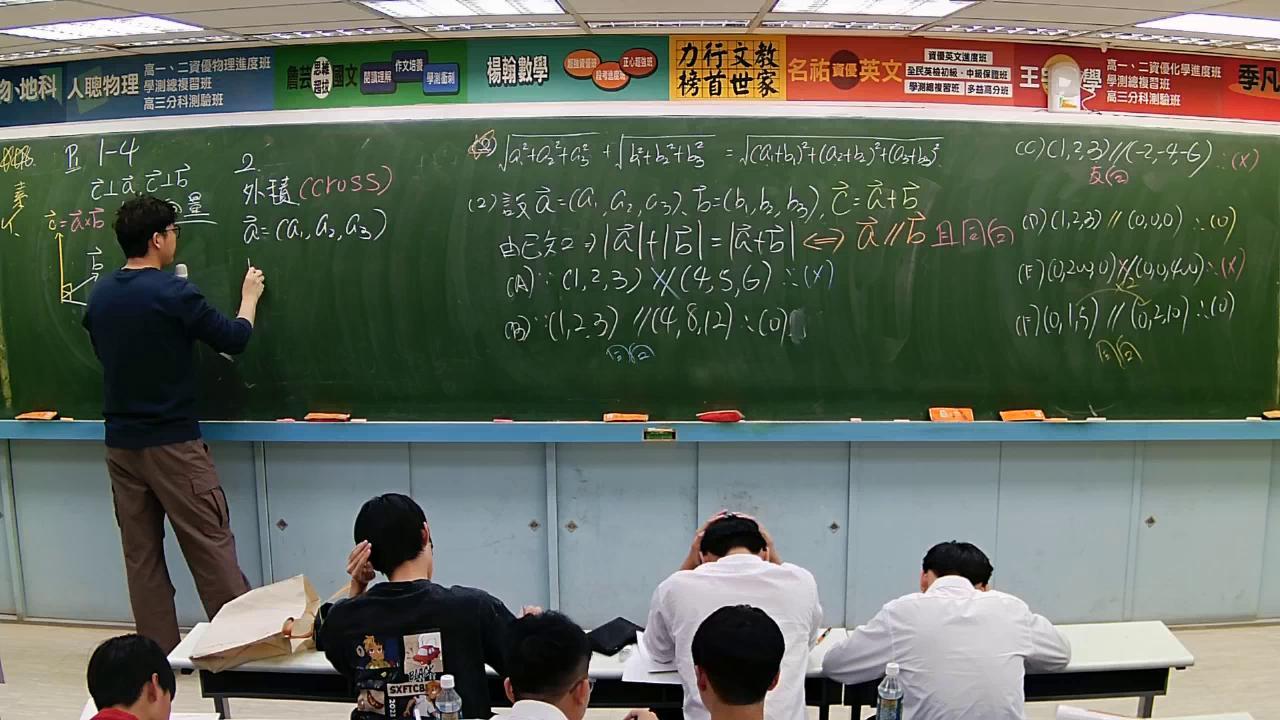 物·地科
人聰物理
高一、二資優物理進度班
學測總複習班
高三分科測驗班
詹芸 思維語技 國文
閱讀理解
作文培養
學測衝刺
楊翰數學
超強資優班
段考進度班
正心超強班
力行文教
榜首世家
名祐資優英文
資優英文進度班
全民英檢初級·中級保證班
學測總複習班
多益高分班
王
學
高一、二資優化學進度班
學測總複習班
高三分科測驗班
季凡
P₁ 1-4
c⃗⊥a⃗, c⃗⊥b⃗
量
c⃗=a⃗×b⃗
b⃗
2.
外積(cross)
a⃗=(a₁,a₂,a₃)
√a₁²+a₂²+a₃² + √b₁²+b₂²+b₃² = √(a₁+b₁)²+(a₂+b₂)²+(a₃+b₃)²
(2) 設 a⃗=(a₁,a₂,a₃)、b⃗=(b₁,b₂,b₃), c⃗=a⃗+b⃗
由已知 2 → |a⃗|+|b⃗|=|a⃗+b⃗| ⟺ a⃗∥b⃗ 且同向
(A) ∵(1,2,3)∦(4,5,6) ∴(×)
(B) ∵(1,2,3)∥(4,8,12) ∴(○)
同向
(C)(1,2,3)∥(-2,-4,-6) ∴(×)
反向
(D)(1,2,3)∥(0,0,0) ∴(○)
(E)(0,200,0)∦(0,0,400) ∴(×)
(F)(0,1,5)∥(0,2,10) ∴(○)
×2
同向
SXFTCBL